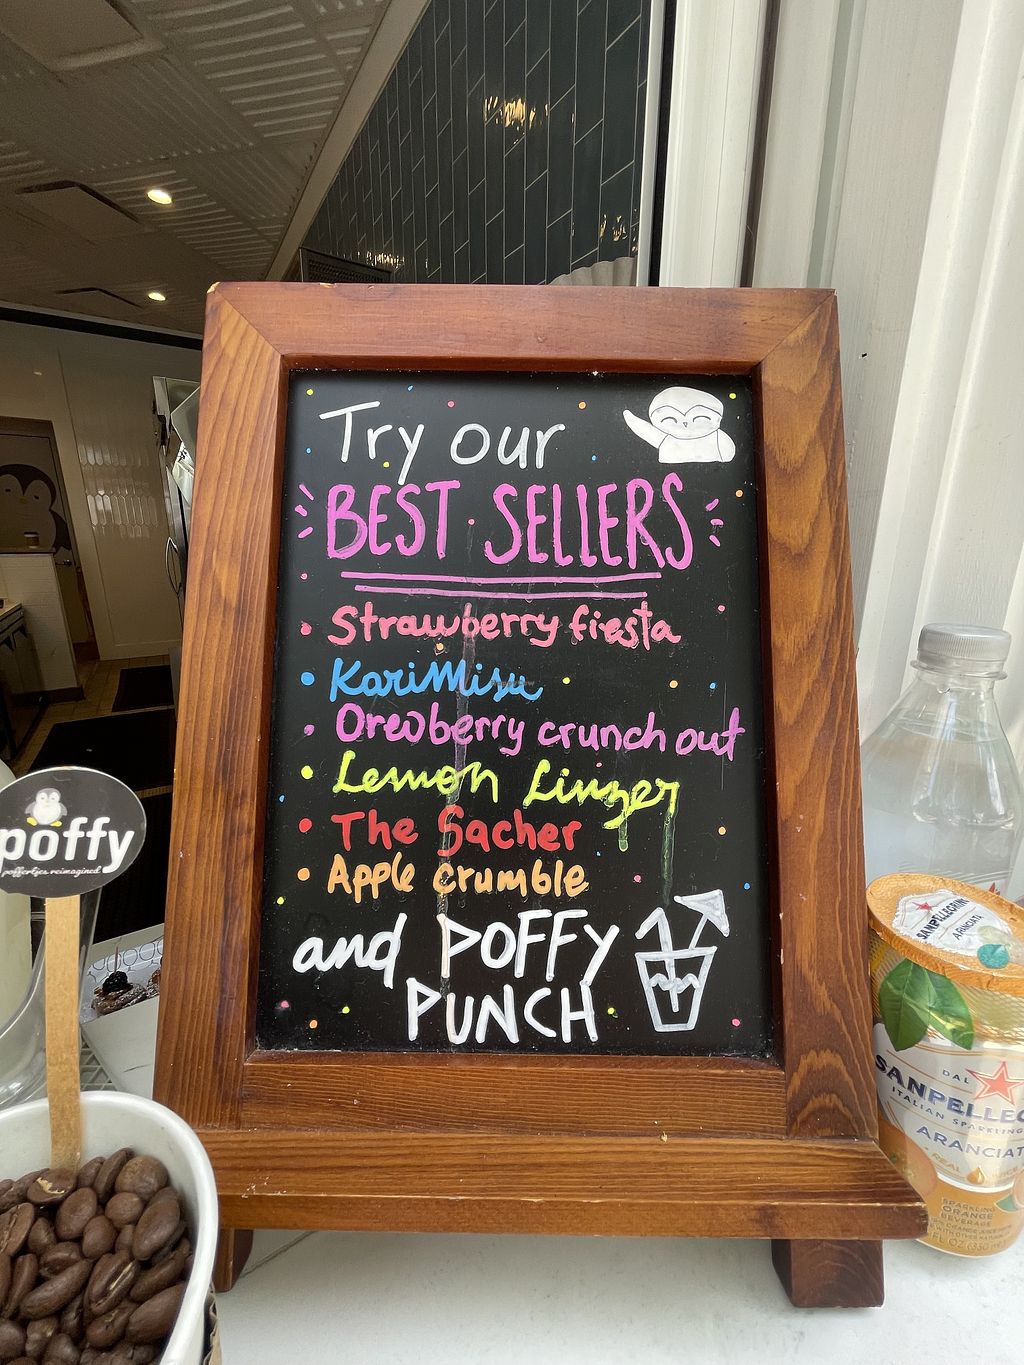 Try our
BEST SELLERS
• Strawberry fiesta
• KariMisu
• Oreoberry crunch out
• Lemon Linzer
• The Sacher
• Apple crumble
and POFFY
PUNCH
poffy
poffertjes reimagined
SANPELLEGRINO
ARANCIATA
DAL
SANPELLEG
ITALIAN SPARKLING
ARANCIAT
REAL
SPARKLING
ORANGE
BEVERAGE